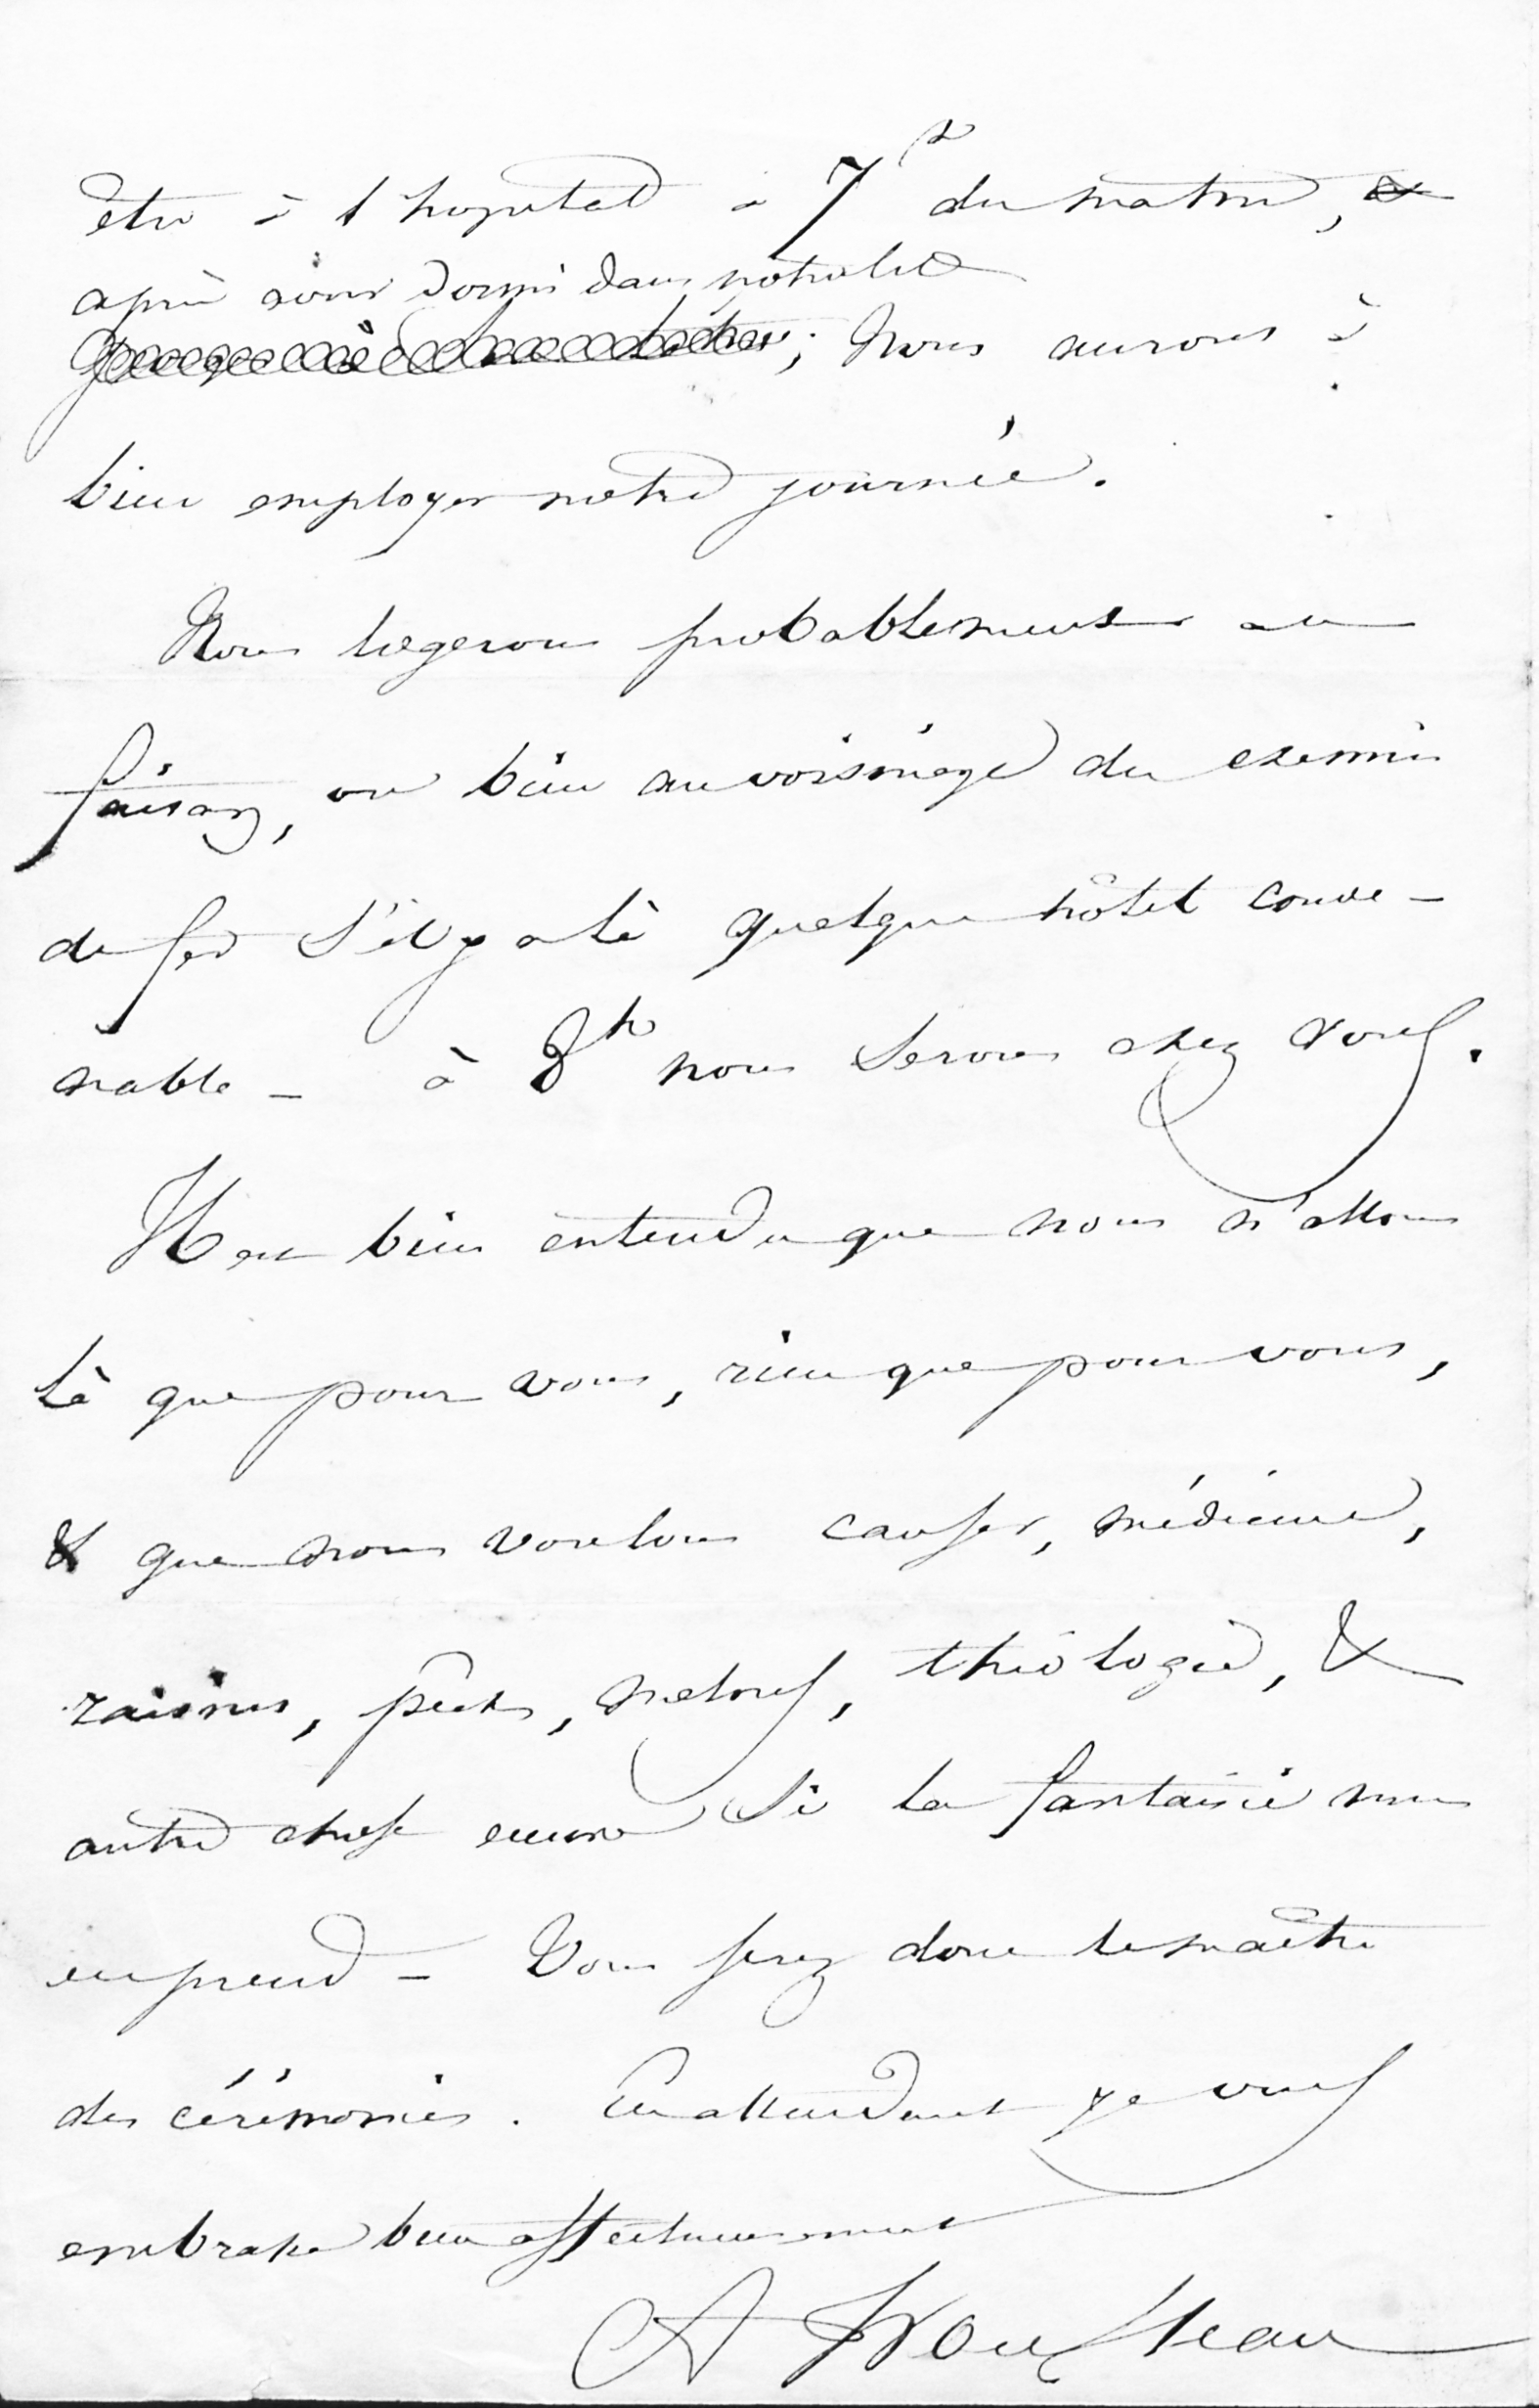 être à l'hopital à 7h du matin, &
après avoir dormi dans notre lit
; Nous aurons à
bien employer notre journée.
Nous logerons probablement au
faisan, ou bien au voisinage du chemin
de fer s'il y a là quelque hôtel conve-
nable – à 8h nous serons chez vous.
Il est bien entendu que nous n'allons
là que pour vous, rien que pour vous,
& que nous voulons causer, médecine,
raisins, pêches, melons, théologie, &
autre chose encore si la fantaisie nous
en prend – Vous serez donc le maître
des cérémonies. En attendant je vous
embrasse bien affectueusement
A Trousseau